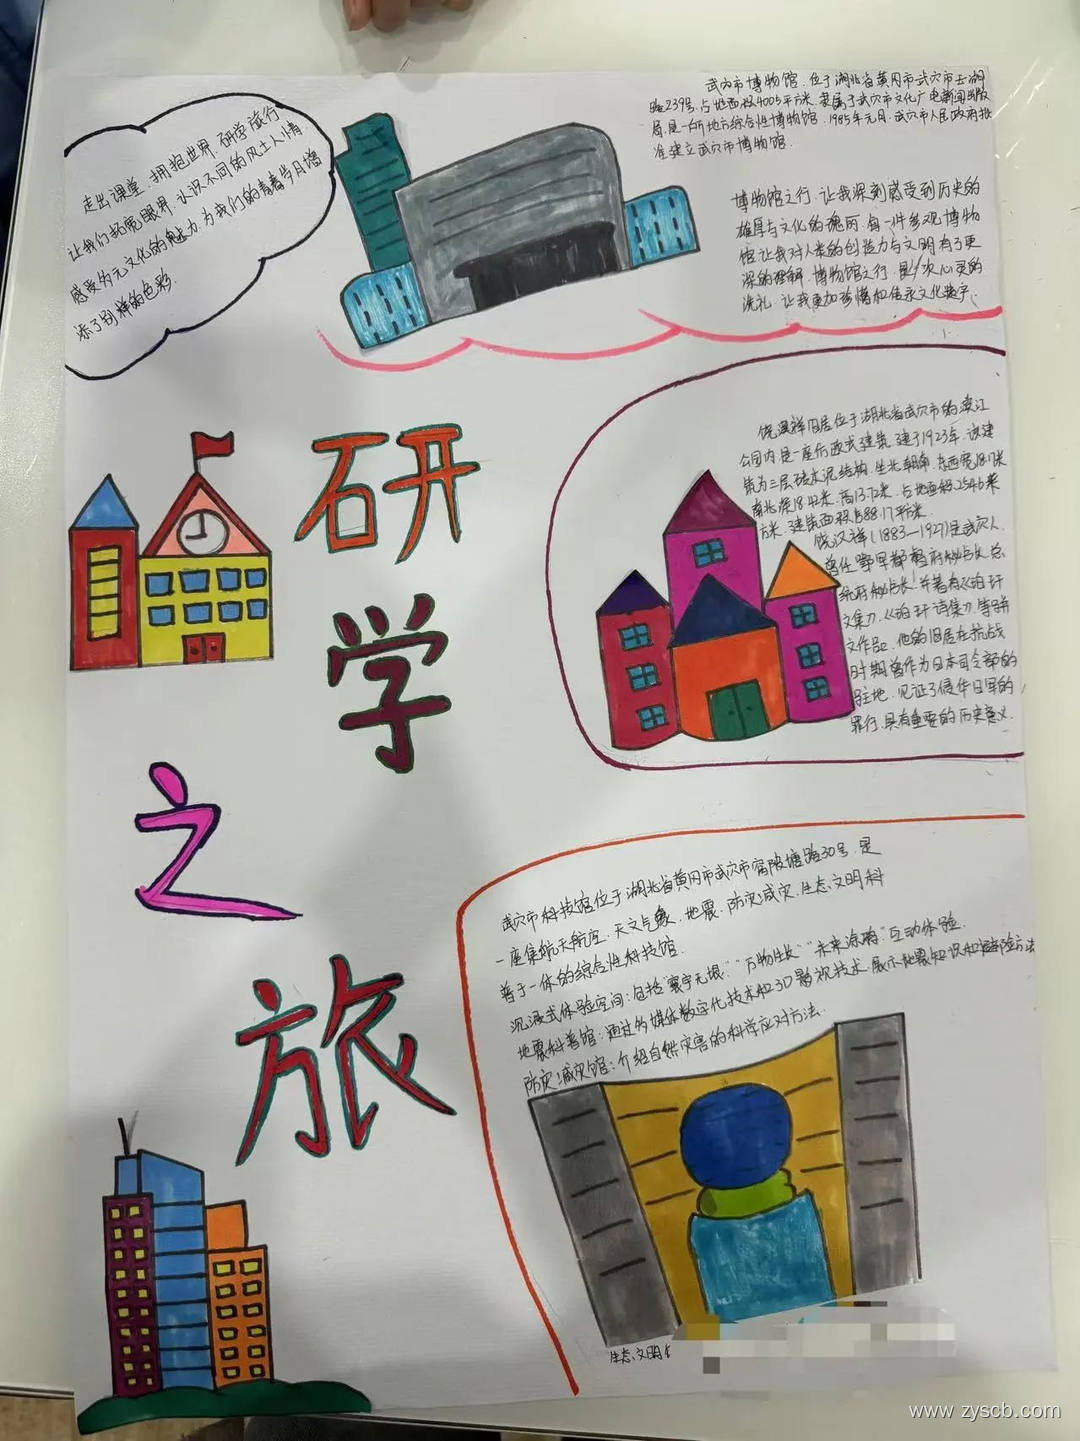 走出课堂,拥抱世界.研学旅行
让我们拓宽眼界.认识不同的风土人情
感受多元文化的魅力,为我们的青春岁月增
添了别样的色彩.
武穴市博物馆.位于湖北省黄冈市武穴市玉湖
路239号,占地面积4005平方米.隶属于武穴市文化广电新闻出版
局,是一所地方综合性博物馆.1985年元月.武穴市人民政府批
准建立武穴市博物馆.
博物馆之行.让我深刻感受到历史的
雄厚与文化的瑰丽.每一件参观博物
馆让我对人类的创造力与文明有了更
深的理解.博物馆之行.是一次心灵的
洗礼.让我更加珍惜和传承文化
研
学
之
旅
饶汉祥旧居位于湖北省武穴市的滨江
公园内是一座仿欧式建筑.建于1923年.该建
筑为三层砖木泥结构.坐北朝南.东西宽18.17米
南北深18.42米.高13.72米.占地面积254.6
方米.建筑面积588.17平方米.
饶汉祥(1883—1927)是武穴人.
曾任鄂军都督府秘书长.总
统府秘书长.并著有《珀玕
文集》.《珀玕诗集》等
文作品.他的旧居在抗战
时期曾作为日本司令部的
驻地.见证了侵华日军的
罪行.具有重要的历史意义.
武穴市科技馆位于湖北省黄冈市武穴市陂塘路30号.是
一座集航天航空.天文气象.地震.防灾减灾.生态文明科
普于一体的综合性科技馆.
沉浸式体验空间:包括"寰宇无垠""万物生长""未来涂鸦"互动体验.
地震科普馆:通过多媒体数字化技术和3D影视技术.展示地震知识和避险方法
防灾减灾馆:介绍自然灾害的科学应对方法.
生态文明
www.zyscb.com